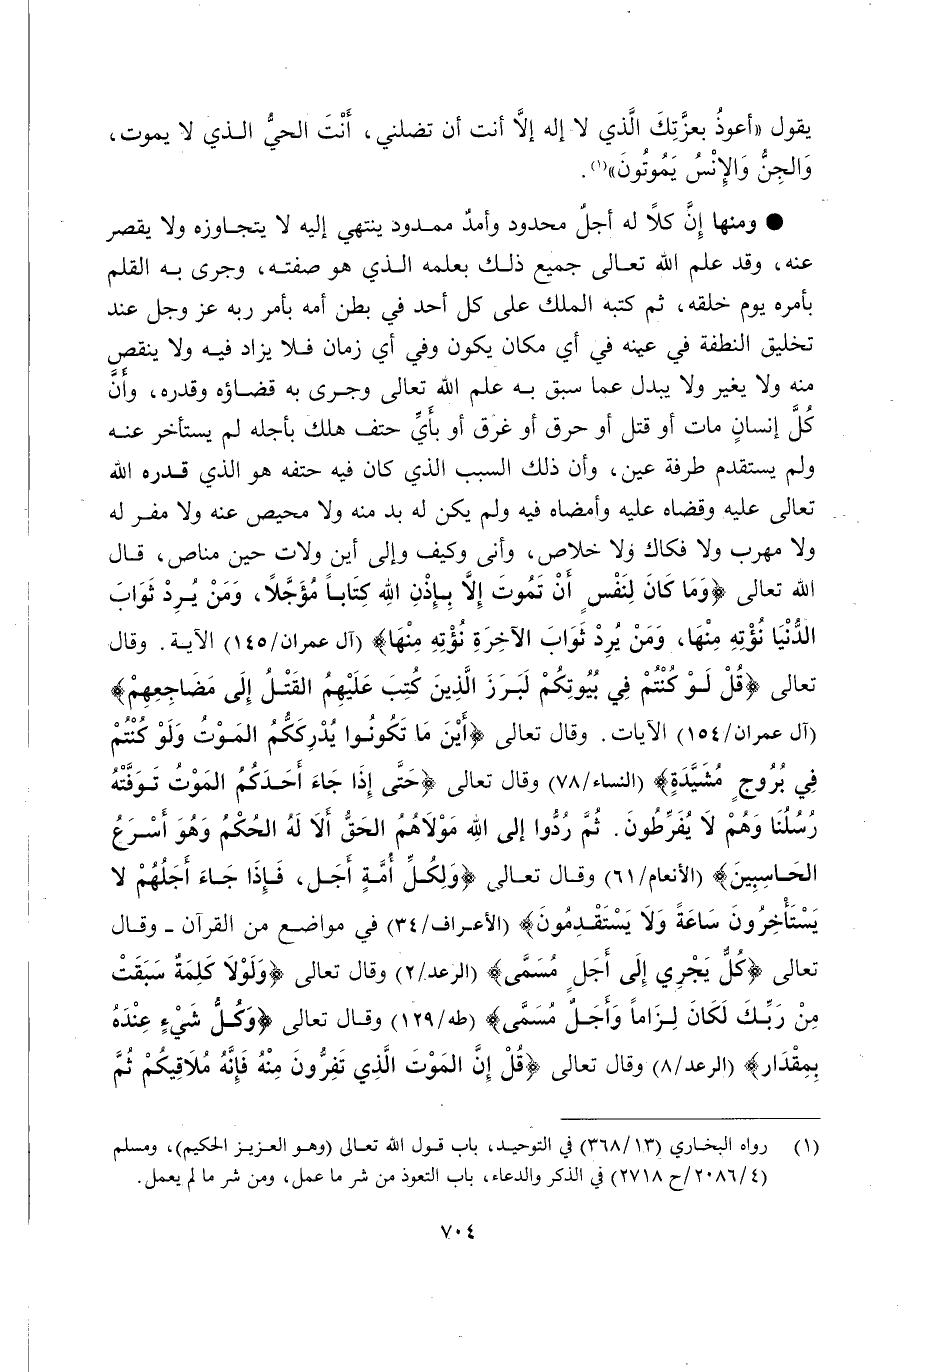 يقول «أعوذُ بعزَّتِكَ الَّذي لا إله إلَّا أنت أن تضلني، أَنْتَ الحيُّ الـذي لا يموت،
وَالجِنُّ وَالإِنْسُ يَمُوتُونَ»(١).
● ومنها إِنَّ كلًا له أجلٌ محدود وأمدٌ ممـدود ينتهي إليه لا يتجـاوزه ولا يقصر
عنه، وقد علم الله تعـالى جميع ذلـك بعلمه الـذي هو صفتـه، وجرى بـه القلم
بأمره يوم خلقه، ثم كتبه الملك على كل أحد في بطن أمه بأمر ربه عز وجل عند
تخليق النطفة في عينه في أي مكان يكون وفي أي زمان فـلا يزاد فيـه ولا ينقص
منه ولا يغير ولا يبدل عما سبق بـه علم الله تعالى وجـرى به قضـاؤه وقدره، وأنَّ
كُلَّ إنسانٍ مات أو قتل أو حرق أو غرق أو بأَيِّ حتف هلك بأجله لم يستأخر عنـه
ولم يستقدم طرفة عين، وأن ذلك السبب الذي كان فيه حتفه هو الذي قـدره الله
تعالى عليه وقضاه عليه وأمضاه فيه ولم يكن له بد منه ولا محيص عنه ولا مفـر له
ولا مهرب ولا فكاك ولا خلاص، وأنى وكيف وإلى أين ولات حين مناص، قـال
الله تعالى ﴿وَمَا كَانَ لِنَفْسٍ أَنْ تَمُوتَ إِلَّا بِـإِذْنِ اللهِ كِتَابـاً مُؤَجَّلًا، وَمَنْ يُـرِدْ ثَوَابَ
الدُّنْيَا نُؤْتِهِ مِنْهَا، وَمَنْ يُرِدْ ثَوَابَ الآخِرَةِ نُؤْتِهِ مِنْهَا﴾ (آل عمران/١٤٥) الآيـة. وقال
تعالى ﴿قُلْ لَـوْ كُنْتُمْ فِي بُيُوتِكُمْ لَبَرَزَ الَّذِينَ كُتِبَ عَلَيْهِمُ القَتْـلُ إِلَى مَضَاجِعِهِمْ﴾
(آل عمران/١٥٤) الآيات. وقال تعالى ﴿أَيْنَ مَا تَكُونُـوا يُدْرِكْكُمُ المَـوْتُ وَلَوْ كُنْتُمْ
فِي بُرُوجٍ مُشَيَّدَةٍ﴾ (النساء/٧٨) وقال تعالى ﴿حَتَّى إِذَا جَاءَ أَحَـدَكُمُ المَوْتُ تَـوَفَّتْهُ
رُسُلُنَا وَهُمْ لَا يُفَرِّطُونَ. ثُمَّ رُدُّوا إلى اللهِ مَوْلَاهُمُ الحَقُّ أَلَا لَهُ الحُكْمُ وَهُوَ أَسْـرَعُ
الحَـاسِبِينَ﴾ (الأنعام/٦١) وقـال تعـالى ﴿وَلِكُـلِّ أُمَّـةٍ أَجَل، فَـإِذَا جَـاءَ أَجَلُهُمْ لا
يَسْتَأْخِرُونَ سَاعَةً وَلَا يَسْتَقْـدِمُونَ﴾ (الأعـراف/٣٤) في مواضـع من القرآن ـ وقـال
تعالى ﴿كُلٌّ يَجْرِي إِلَى أَجَلٍ مُسَمًّى﴾ (الرعد/٢) وقال تعالى ﴿وَلَوْلَا كَلِمَةٌ سَبَقَتْ
مِنْ رَبِّـكَ لَكَانَ لِـزَاماً وَأَجَـلٌ مُسَمًّى﴾ (طه/١٢٩) وقـال تعالى ﴿وَكُـلُّ شَيْءٍ عِنْدَهُ
بِمِقْدَار﴾ (الرعد/٨) وقال تعالى ﴿قُلْ إِنَّ المَوْتَ الَّذِي تَفِرُّونَ مِنْهُ فَإِنَّهُ مُلَاقِيكُمْ ثُمَّ
(١) رواه البخـاري (٣٦٨/١٣) في التوحيـد، باب قـول الله تعـالى (وهـو العزيـز الحكيم)، ومسلم
(٢٠٨٦/٤/ح ٢٧١٨) في الذكر والدعاء، باب التعوذ من شر ما عمل، ومن شر ما لم يعمل.
٧٠٤